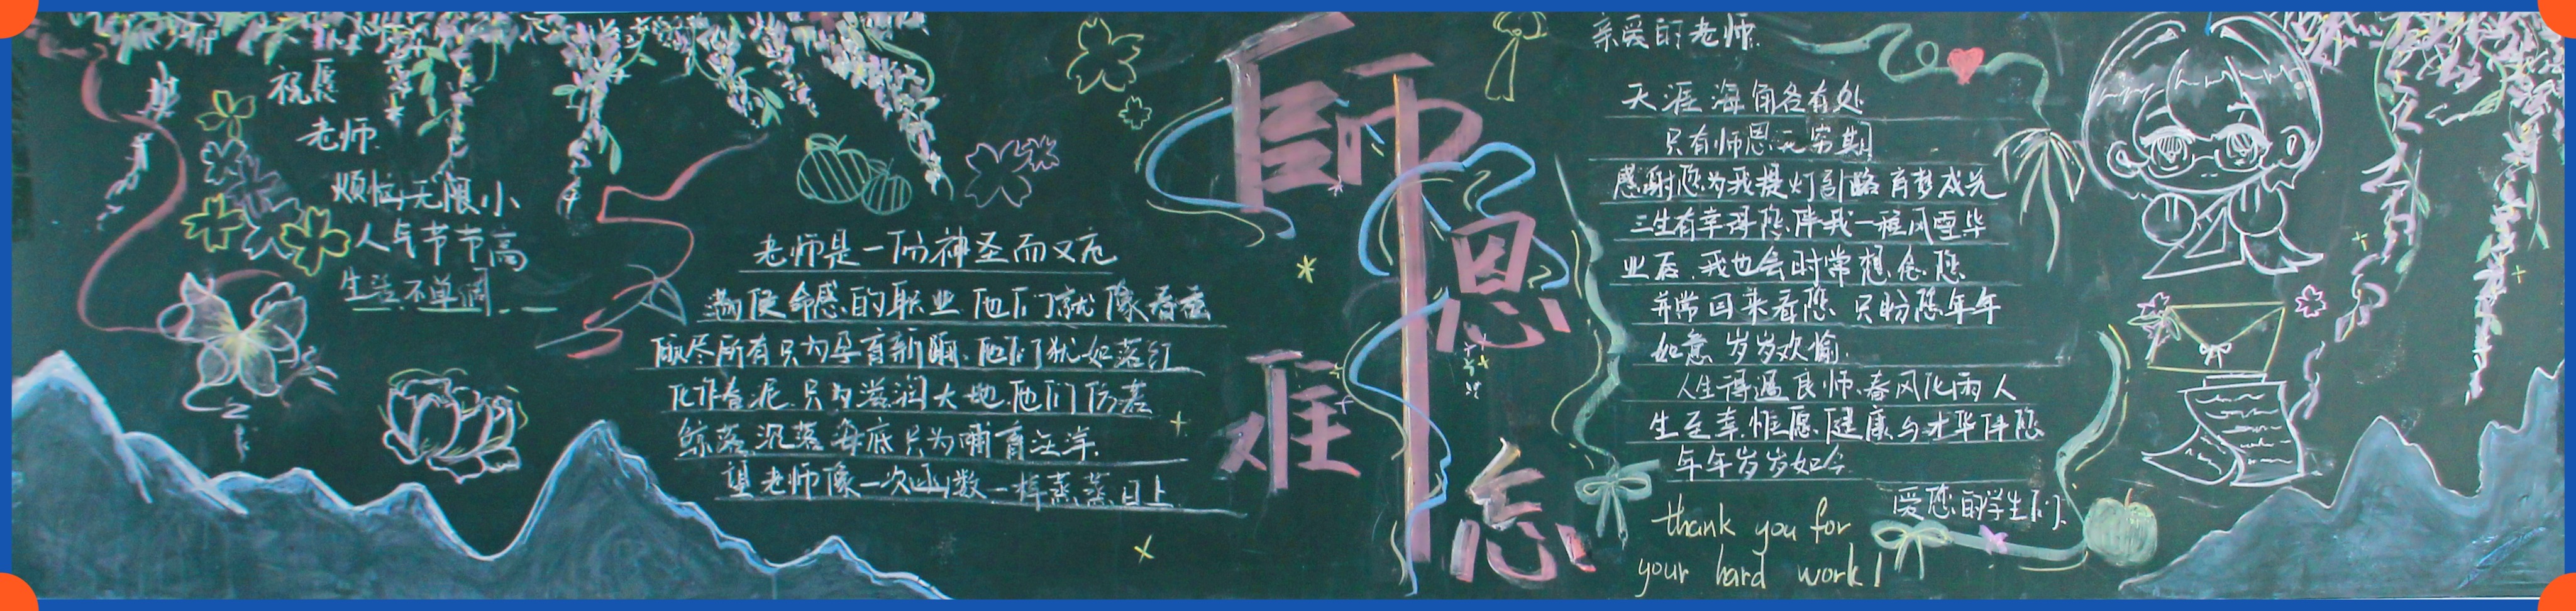 祝愿
老师
烦恼无限小
人气节节高
生活不单调
老师是一份神圣而又充
满使命感的职业.他们就像春蚕
献尽所有只为孕育新酮.他们犹如落红
化作春泥.只为滋润大地.他们仿若
鲸落沉落海底只为哺育汪洋.
望老师像一次函数一样蒸蒸日上.
師恩難忘
亲爱的老师.
天涯海角各有处
只有师恩无穷期
感谢您为我提灯引路育梦成光
三生有幸得您伴我一程风雪毕
业后.我也会时常想念您
并常回来看您.只盼您年年
如意 岁岁欢愉.
人生得遇良师.春风化雨人
生至幸.惟愿健康与才华伴您
年年岁岁如今
爱您的学生们.
thank you for
your hard work!